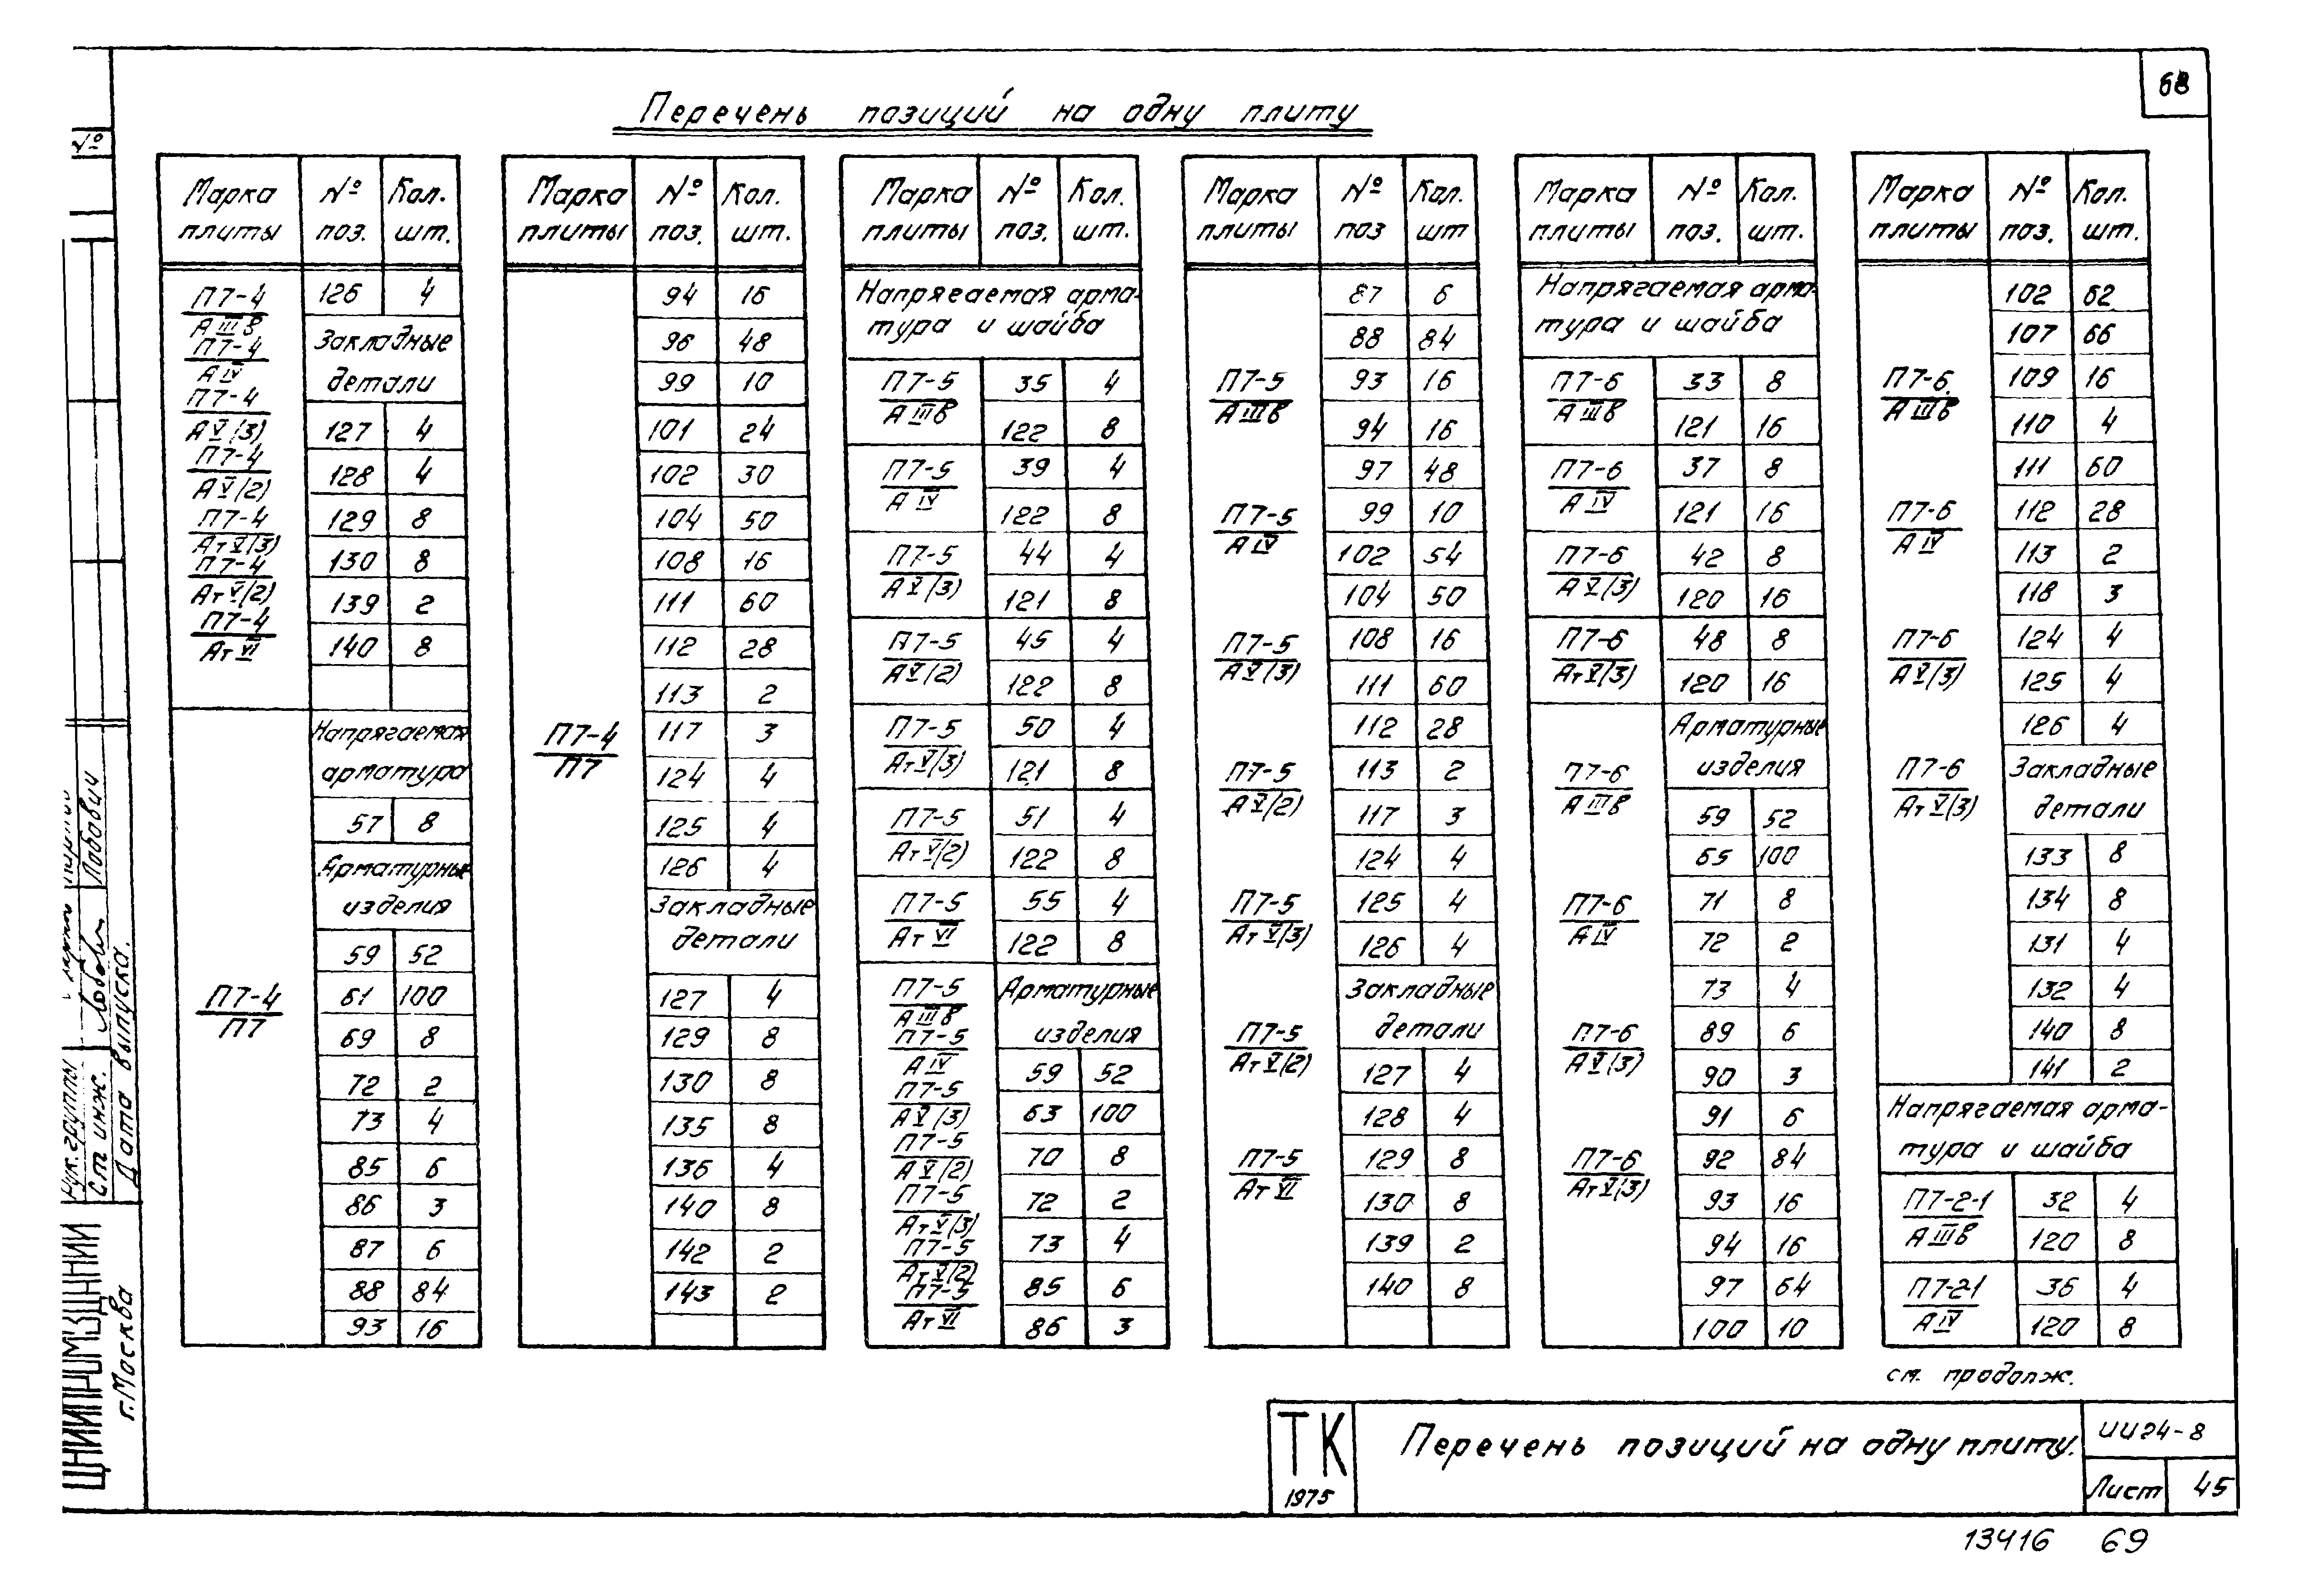 68
Перечень позиций на одну плиту
№
Марка плиты № поз. Кол. шт.
П7-4 АIIIв
П7-4 АIV
П7-4 АV(3)
П7-4 АV(2)
П7-4 АтV(3)
П7-4 АтV(2)
П7-4 АтVI
126 4
Закладные
детали
127 4
128 4
129 8
130 8
139 2
140 8
П7-4 П7
Напрягаемая
арматура
57 8
Арматурные
изделия
59 52
61 100
69 8
72 2
73 4
85 6
86 3
87 6
88 84
93 16
Марка плиты № поз. Кол. шт.
П7-4 П7
94 16
96 48
99 10
101 24
102 30
104 50
108 16
111 60
112 28
113 2
117 3
124 4
125 4
126 4
Закладные
детали
127 4
129 8
130 8
135 8
136 4
140 8
142 2
143 2
Марка плиты № поз. Кол. шт.
Напрягаемая арма-
тура и шайба
П7-5 АIIIв
35 4
122 8
П7-5 АIV
39 4
122 8
П7-5 АV(3)
44 4
121 8
П7-5 АV(2)
45 4
122 8
П7-5 АтV(3)
50 4
121 8
П7-5 АтV(2)
51 4
122 8
П7-5 АтVI
55 4
122 8
П7-5 АIIIв
П7-5 АIV
П7-5 АV(3)
П7-5 АV(2)
П7-5 АтV(3)
П7-5 АтV(2)
П7-5 АтVI
Арматурные
изделия
59 52
63 100
70 8
72 2
73 4
85 6
86 3
Марка плиты № поз Кол. шт
П7-5 АIIIв
П7-5 АIV
П7-5 АV(3)
П7-5 АV(2)
П7-5 АтV(3)
П7-5 АтV(2)
П7-5 АтVI
87 6
88 84
93 16
94 16
97 48
99 10
102 54
104 50
108 16
111 60
112 28
113 2
117 3
124 4
125 4
126 4
Закладные
детали
127 4
128 4
129 8
130 8
139 2
140 8
Марка плиты № поз. Кол. шт.
Напрягаемая арма-
тура и шайба
П7-6 АIIIв
33 8
121 16
П7-6 АIV
37 8
121 16
П7-6 АV(3)
42 8
120 16
П7-6 АтV(3)
48 8
120 16
П7-6 АIIIв
П7-6 АIV
П7-6 АV(3)
П7-6 АтV(3)
Арматурные
изделия
59 52
65 100
71 8
72 2
73 4
89 6
90 3
91 6
92 84
93 16
94 16
97 64
100 10
Марка плиты № поз. Кол. шт.
П7-6 АIIIв
П7-6 АIV
П7-6 АV(3)
П7-6 АтV(3)
102 62
107 66
109 16
110 4
111 60
112 28
113 2
118 3
124 4
125 4
126 4
Закладные
детали
133 8
134 8
131 4
132 4
140 8
141 2
Напрягаемая арма-
тура и шайба
П7-2-1 АIIIв
32 4
120 8
П7-2-1 АIV
36 4
120 8
см. продолж.
ТК
1975
Перечень позиций на одну плиту.
ИИ24-8
Лист 45
13416 69
Рук. группы
Ст. инж. Лобович
Дата выпуска.
ЦНИИПРОМЗДАНИЙ
г. Москва